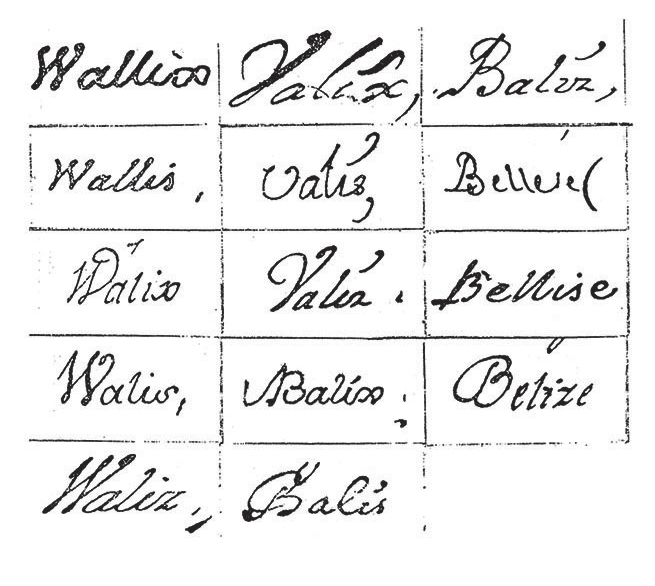 Wallix Valix, Baliz,
Wallis, Valis,
Walix Valiz. Bellise
Walis, Balix; Belize
Waliz, Balis